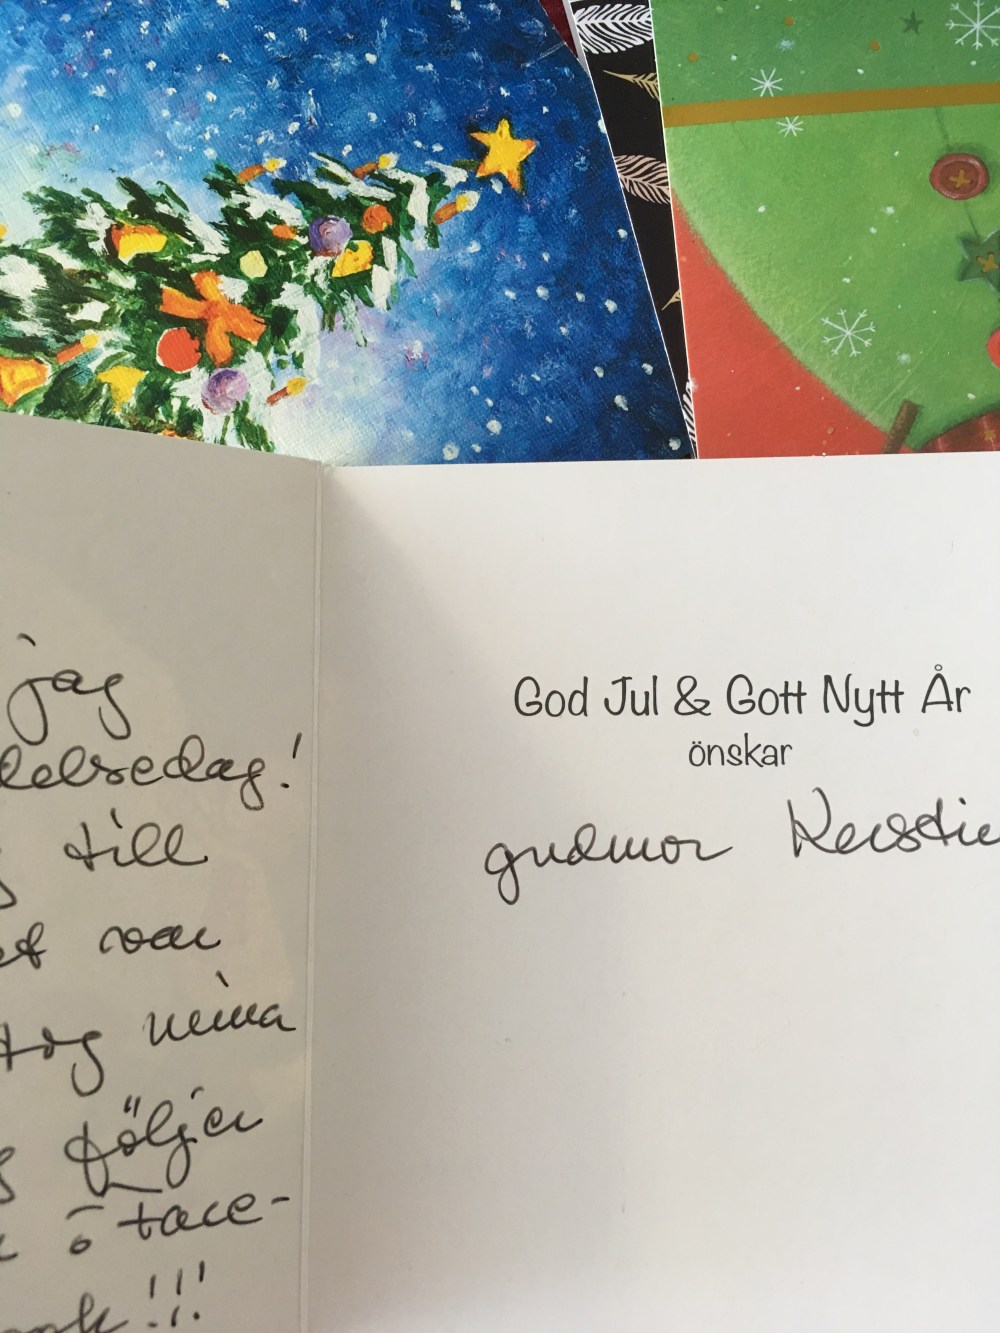 jag
delsedag!
till
et var
tog mina
följer
face-
!!!
God Jul & Gott Nytt År
önskar
gudmor Kerstin